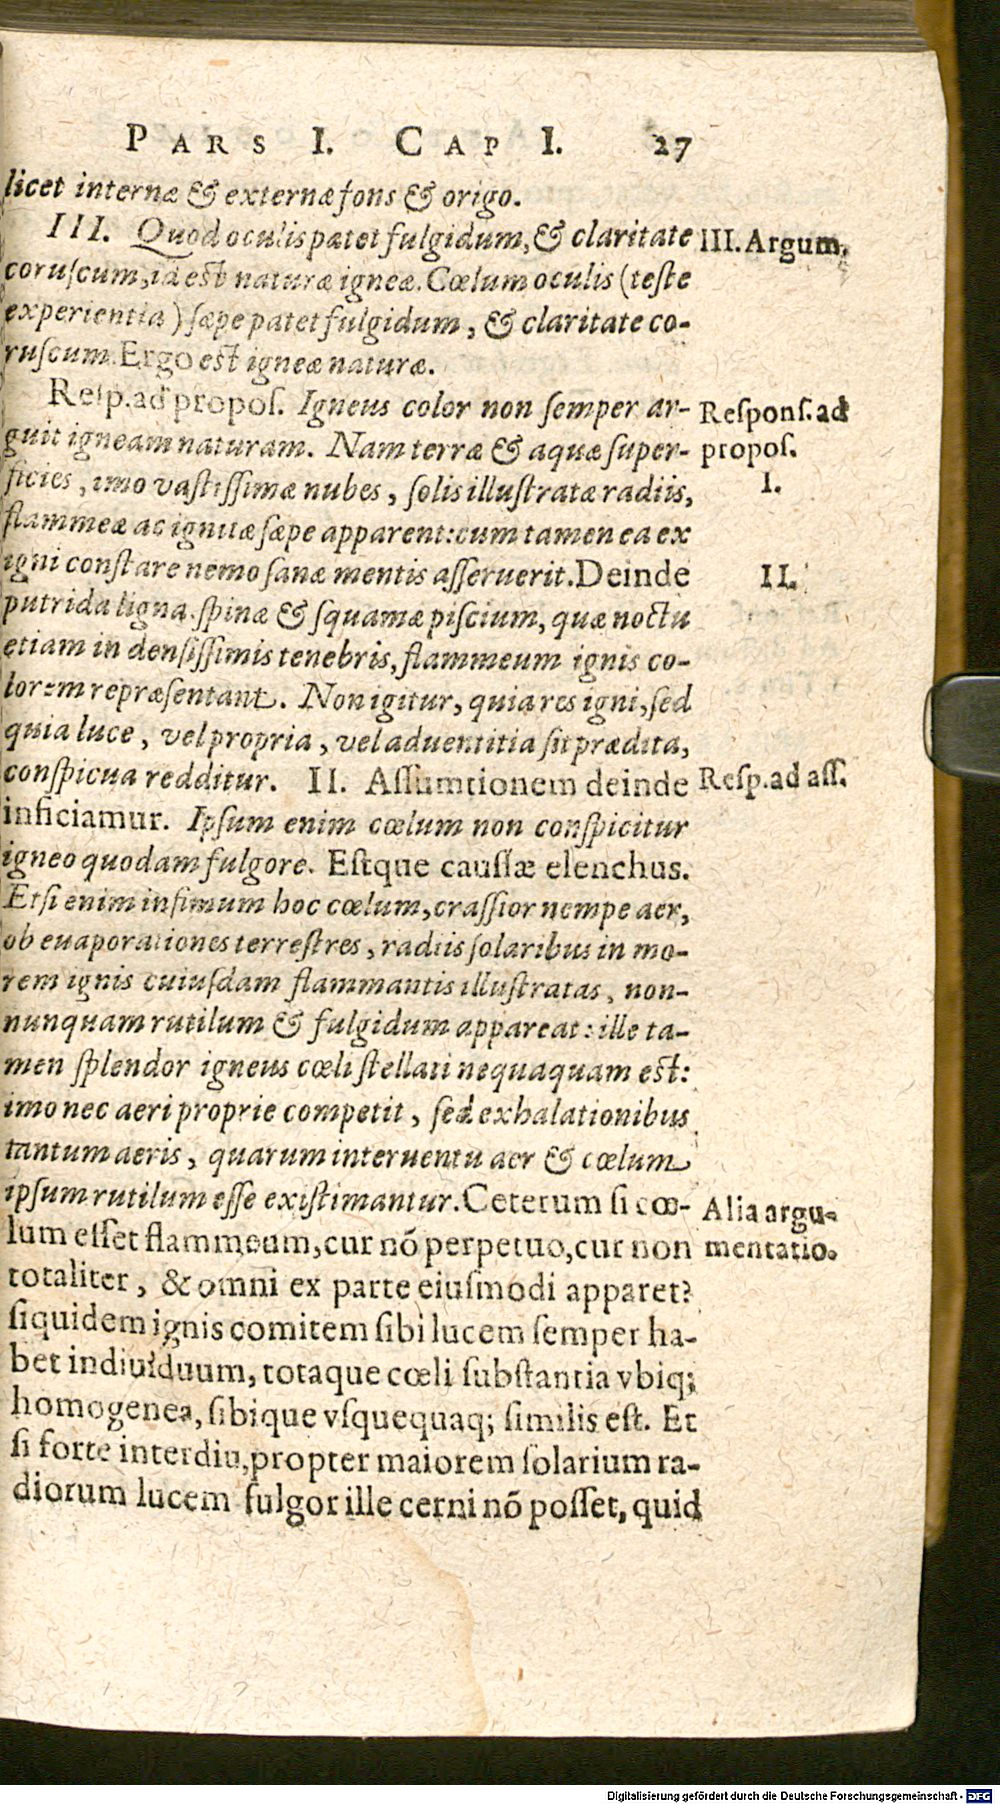 PARS I. CAP I. 27
licet internæ & externæ fons & origo.
III. Quod oculis patet fulgidum, & claritate
III. Argum.
coruſcum, id est naturæ igneæ. Cœlum oculis (teſte
experientia) ſæpe patet fulgidum, & claritate co-
ruſcum. Ergo est igneæ naturæ.
Reſp. ad propoſ. Igneus color non ſemper ar-
Reſponſ. ad
guit igneam naturam. Nam terræ & aquæ ſuper-
propoſ.
ficies, imo vaſtiſſimæ nubes, ſolis illuſtratæ radiis,
I.
flammeæ ac ignitæ ſæpe apparent: cum tamen ea ex
igni conſtare nemo ſanæ mentis aſſeruerit. Deinde
II.
putrida ligna. ſpinæ & ſquamæ piſcium, quæ noctu
etiam in denſiſſimis tenebris, flammeum ignis co-
lorem repræſentant. Non igitur, quia res igni, ſed
quia luce, vel propria, vel aduentitia ſit prædita,
conſpicua redditur. II. Aſſumtionem deinde
Reſp. ad aſſ.
inficiamur. Ipſum enim cœlum non conſpicitur
igneo quodam fulgore. Eſtque cauſſæ elenchus.
Etſi enim infimum hoc cœlum, craſſior nempe aer,
ob euaporationes terreſtres, radiis ſolaribus in mo-
rem ignis cuiuſdam flammantis illuſtratas, non-
nunquam rutilum & fulgidum appareat: ille ta-
men ſplendor igneus cœli ſtellati nequaquam est:
imo nec aeri proprie competit, ſed exhalationibus
tantum aeris, quarum interuentu aer & cœlum
ipſum rutilum eſſe exiſtimantur. Ceterum ſi cœ-
Alia argu-
lum eſſet flammeum, cur nõ perpetuo, cur non
mentatio.
totaliter, & omni ex parte eiuſmodi apparet?
ſiquidem ignis comitem ſibi lucem ſemper ha-
bet indiuiduum, totaque cœli ſubſtantia vbiq;
homogenea, ſibique vſquequaq; ſimilis eſt. Et
ſi forte interdiu, propter maiorem ſolarium ra-
diorum lucem fulgor ille cerni nõ poſſet, quid
Digitalisierung gefördert durch die Deutsche Forschungsgemeinschaft - DFG